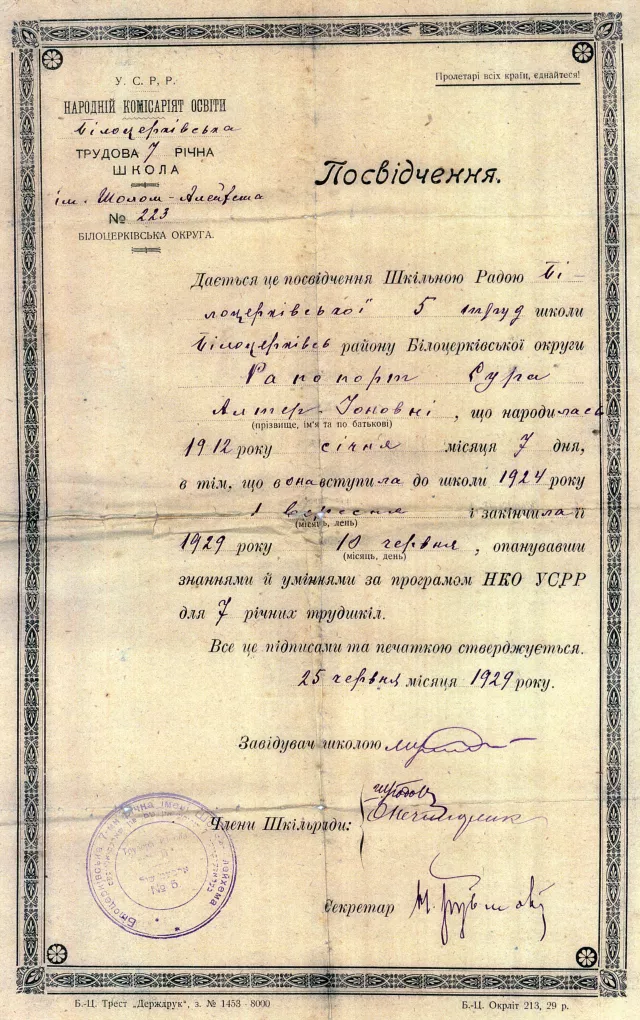 У. С. Р. Р.
НАРОДНІЙ КОМІСАРІЯТ ОСВІТИ
Білоцерківська
ТРУДОВА 7 РІЧНА
ШКОЛА
ім. Шолом-Алейхема
№ 223
БІЛОЦЕРКІВСЬКА ОКРУГА.
Пролетарі всіх країн, єднайтеся!
Посвідчення.
Дається це посвідчення Шкільною Радою Бі-
лоцерківської 5 труд школи
Білоцерківськ району Білоцерківської округи
Рапопорт Сура
Алтер-Іоновні, що народилась
(прізвище, ім'я та по батькові)
1912 року січня місяця 7 дня,
в тім, що вона вступила до школи 1924 року
1 вересня і закінчила її
(місяць, день)
1929 року 18 червня, опанувавши
(місяць, день)
знаннями й уміннями за програмом НКО УСРР
для 7 річних трудшкіл.
Все це підписами та печаткою стверджується.
25 червня місяця 1929 року.
Завідувач школою
Члени Шкільради:
Секретар
№ 5
Б.-Ц. Трест „Держдрук", з. № 1453 - 8000
Б.-Ц. Окрліт 213, 29 р.